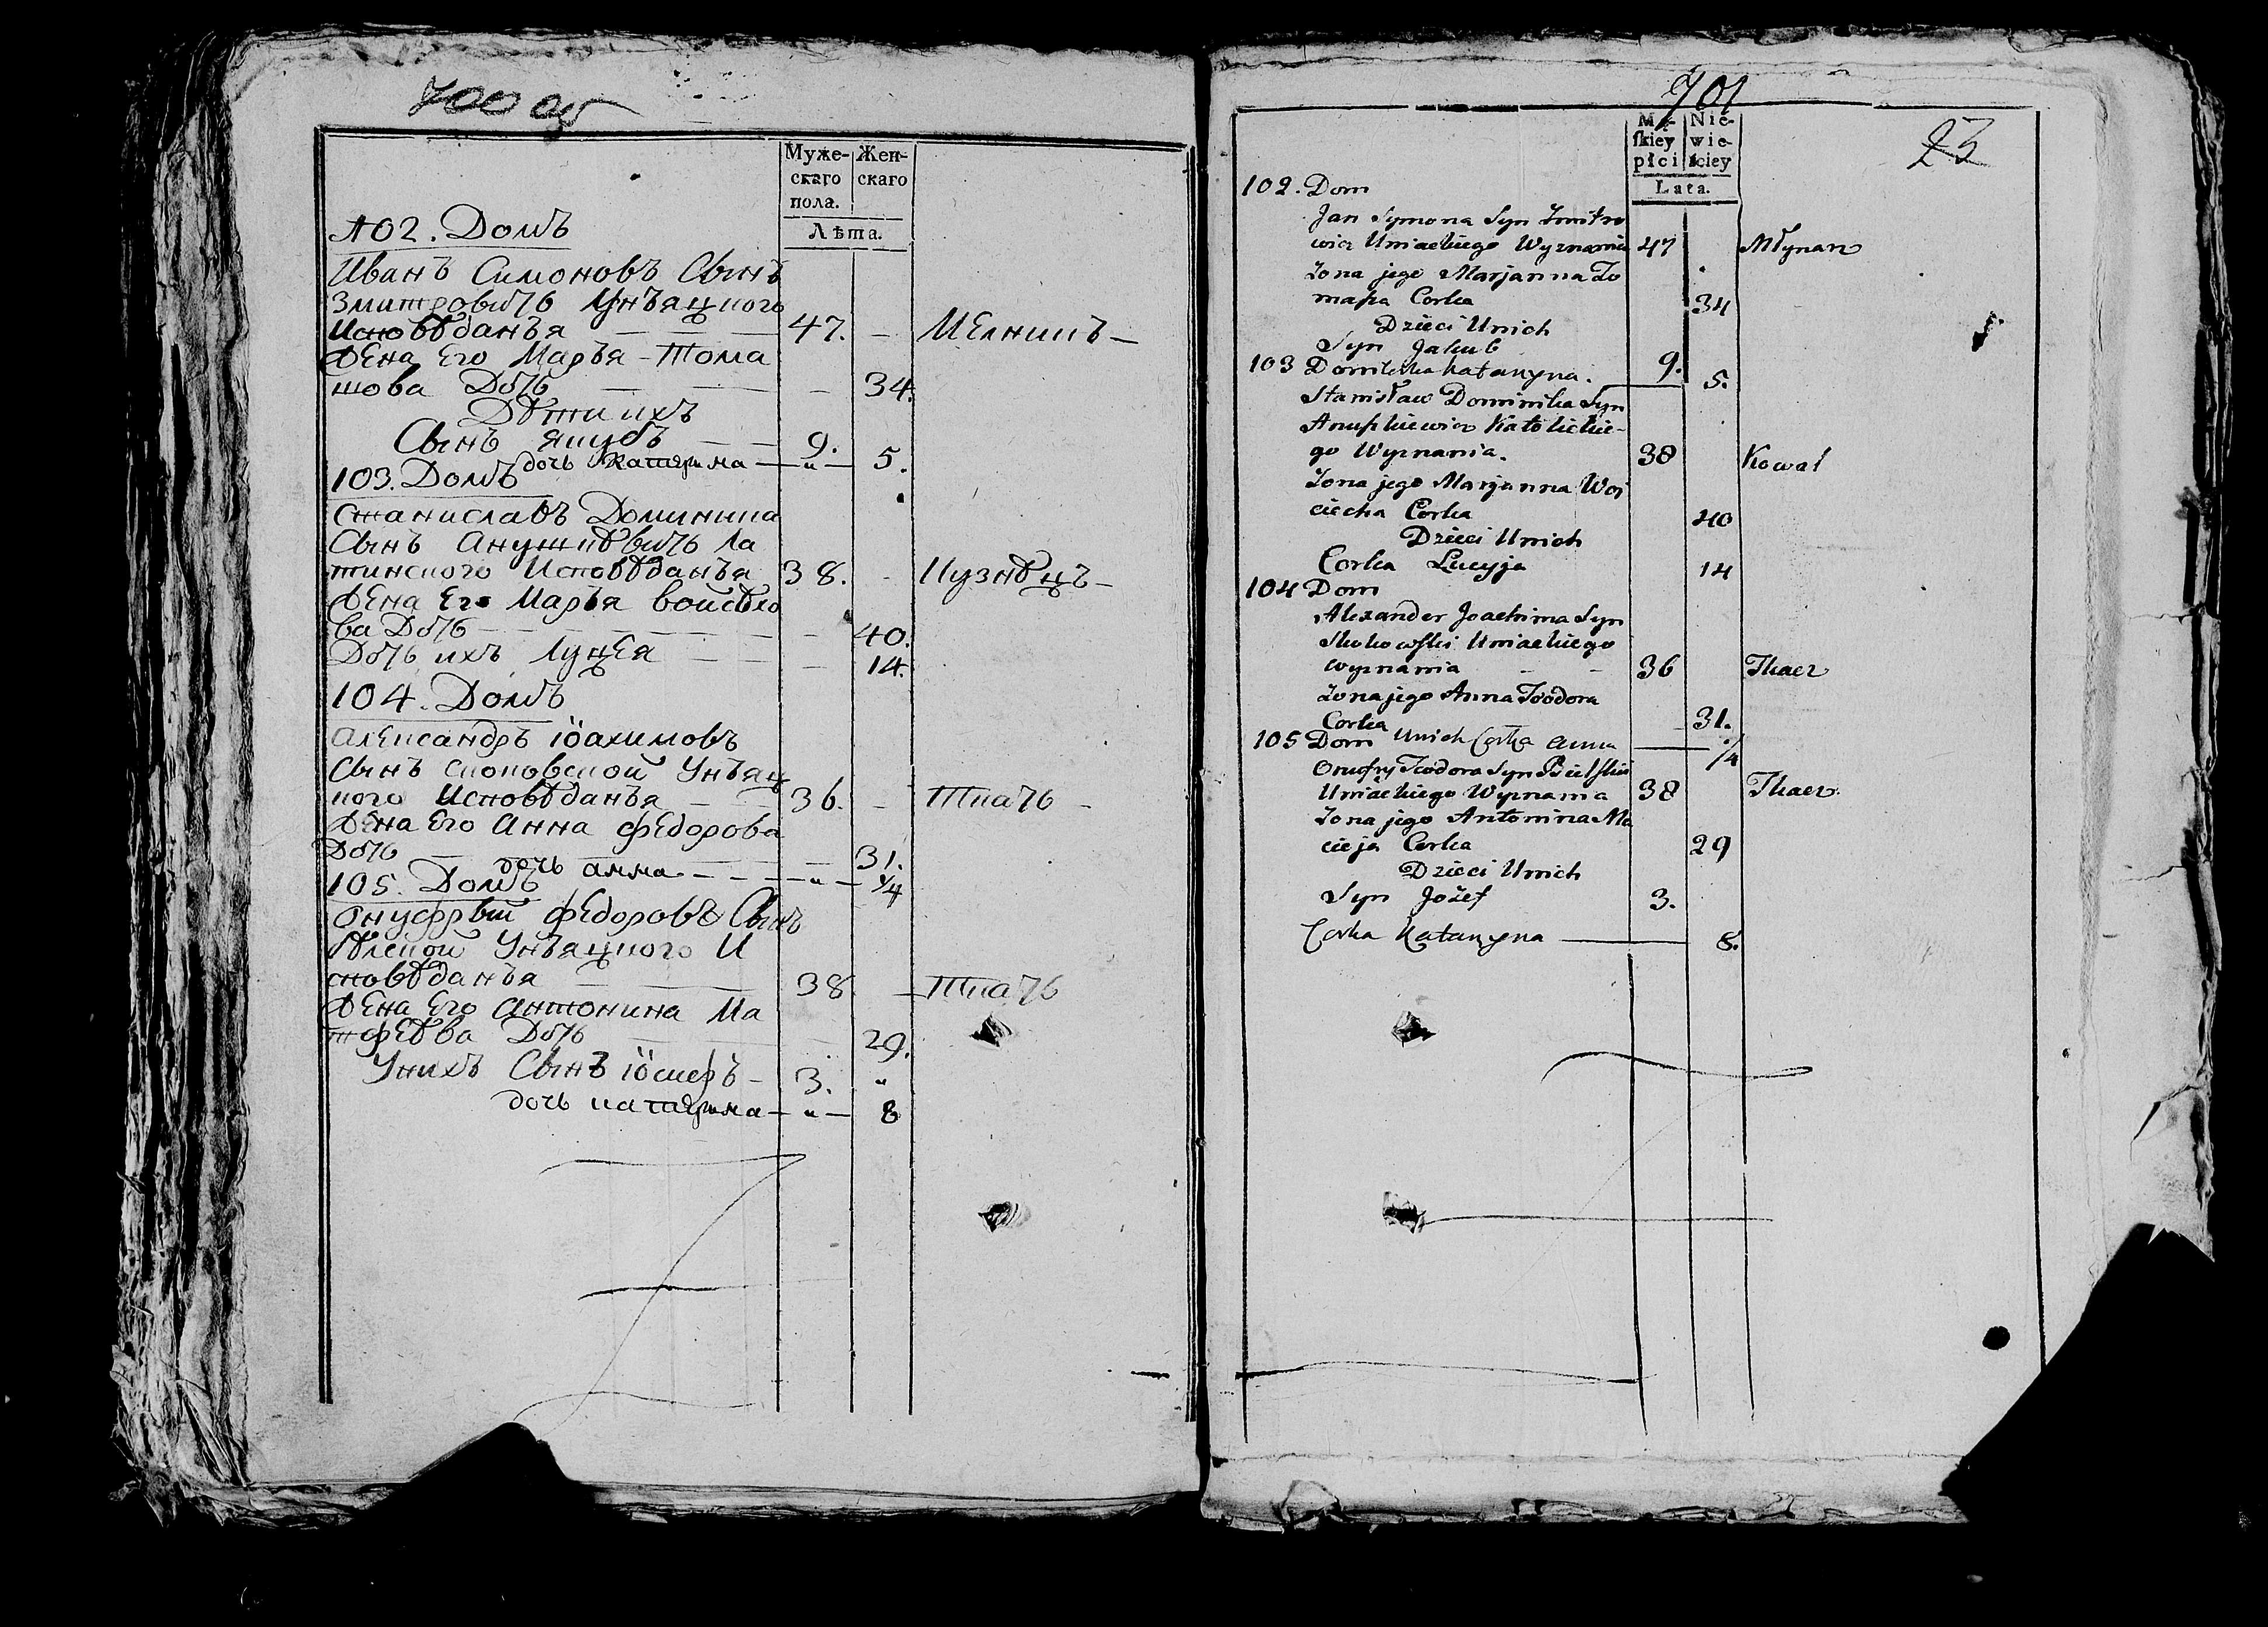 700 об
Муже- Жен-
скаго скаго
пола.
Лѣта.
102. Домъ
Иванъ Симоновъ Сынъ
Змитровичь Унъяцкого
Исповѣданъя 47. Мелникъ
Жена Его Маръя Тома
шова Дочь 34.
Дѣти ихъ
Сынъ Якубъ 9.
дочь Катерина 5.
103. Домъ
Станиславъ Доминика
Сынъ Анушкѣвичь Ла
тинского Исповѣданъя 38. Кузнѣцъ
Жена Его Маръя Войсѣхо
ва Дочь 40.
Дочь ихъ Луцея 14.
104. Домъ
Александръ Іоахимовъ
Сынъ Скоковской Унъяц
кого Исповѣданъя 36. Ткачь
Жена Его Анна Федорова
Дочь 31.
дочь анна 1/4
105. Домъ
Онуфрѣй Федоровъ Сынъ
Бѣлской Унъяцкого И
сповѣданъя 38 Ткачь
Жена Его Антонина Ма
тфѣева Дочь 29.
У нихъ Сынъ Іосифъ 3. "
дочь катерина " 8
701
23
Mę- Nie-
skiey wie-
płci sciey
Lata.
102. Dom
Jan Symona Syn Zmitro
wicz Uniackiego Wyznania 47 Młynarz
Zona jego Marjanna To
masza Corka 34
Dzieci Unich
Syn Jakub 9.
103 Dom Corka Katarzyna. 5.
Stanisław Dominika Syn
Anuszkiewicz Katolickie-
go Wyznania. 38 Kowal
Zona jego Marjanna Woj
ciecha Corka 40
Dzieci Unich
Corka Lucyja 14
104 Dom
Alexander Joachima Syn
Skokowski Uniackiego
wyznania 36 Tkacz
Zona jego Anna Teodora
Corka 31.
105 Dom Unich Corka Anna 1/4
Onufry Teodora Syn Bielski
Uniackiego Wyznania 38 Tkacz
Zona jego Antonina Ma
cieja Corka 29
Dzieci Unich
Syn Jożef 3.
Corka Katarzyna 8.